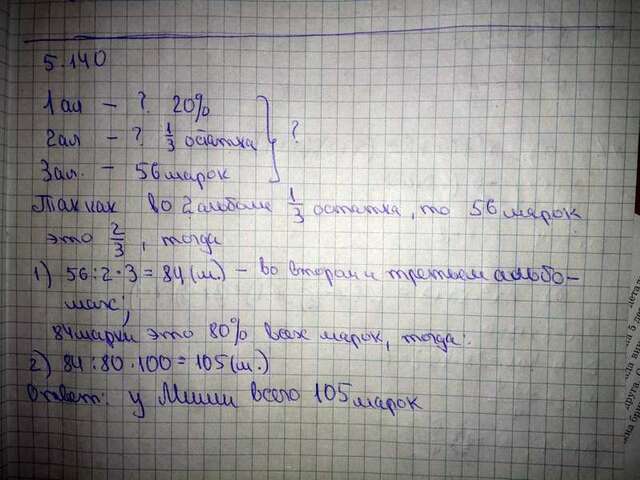 5.140
1 ал - ? 20%
2 ал - ? 1/3 остатка } ?
3 ал. - 56 марок
Так как во 2 альбоме 1/3 остатка, то 56 марок
это 2/3, тогда
1) 56:2·3=84(м) - во втором и третьем альбо-
мах;
84 марки это 80% всех марок, тогда:
2) 84:80·100=105(м.)
Ответ: у Миши всего 105 марок